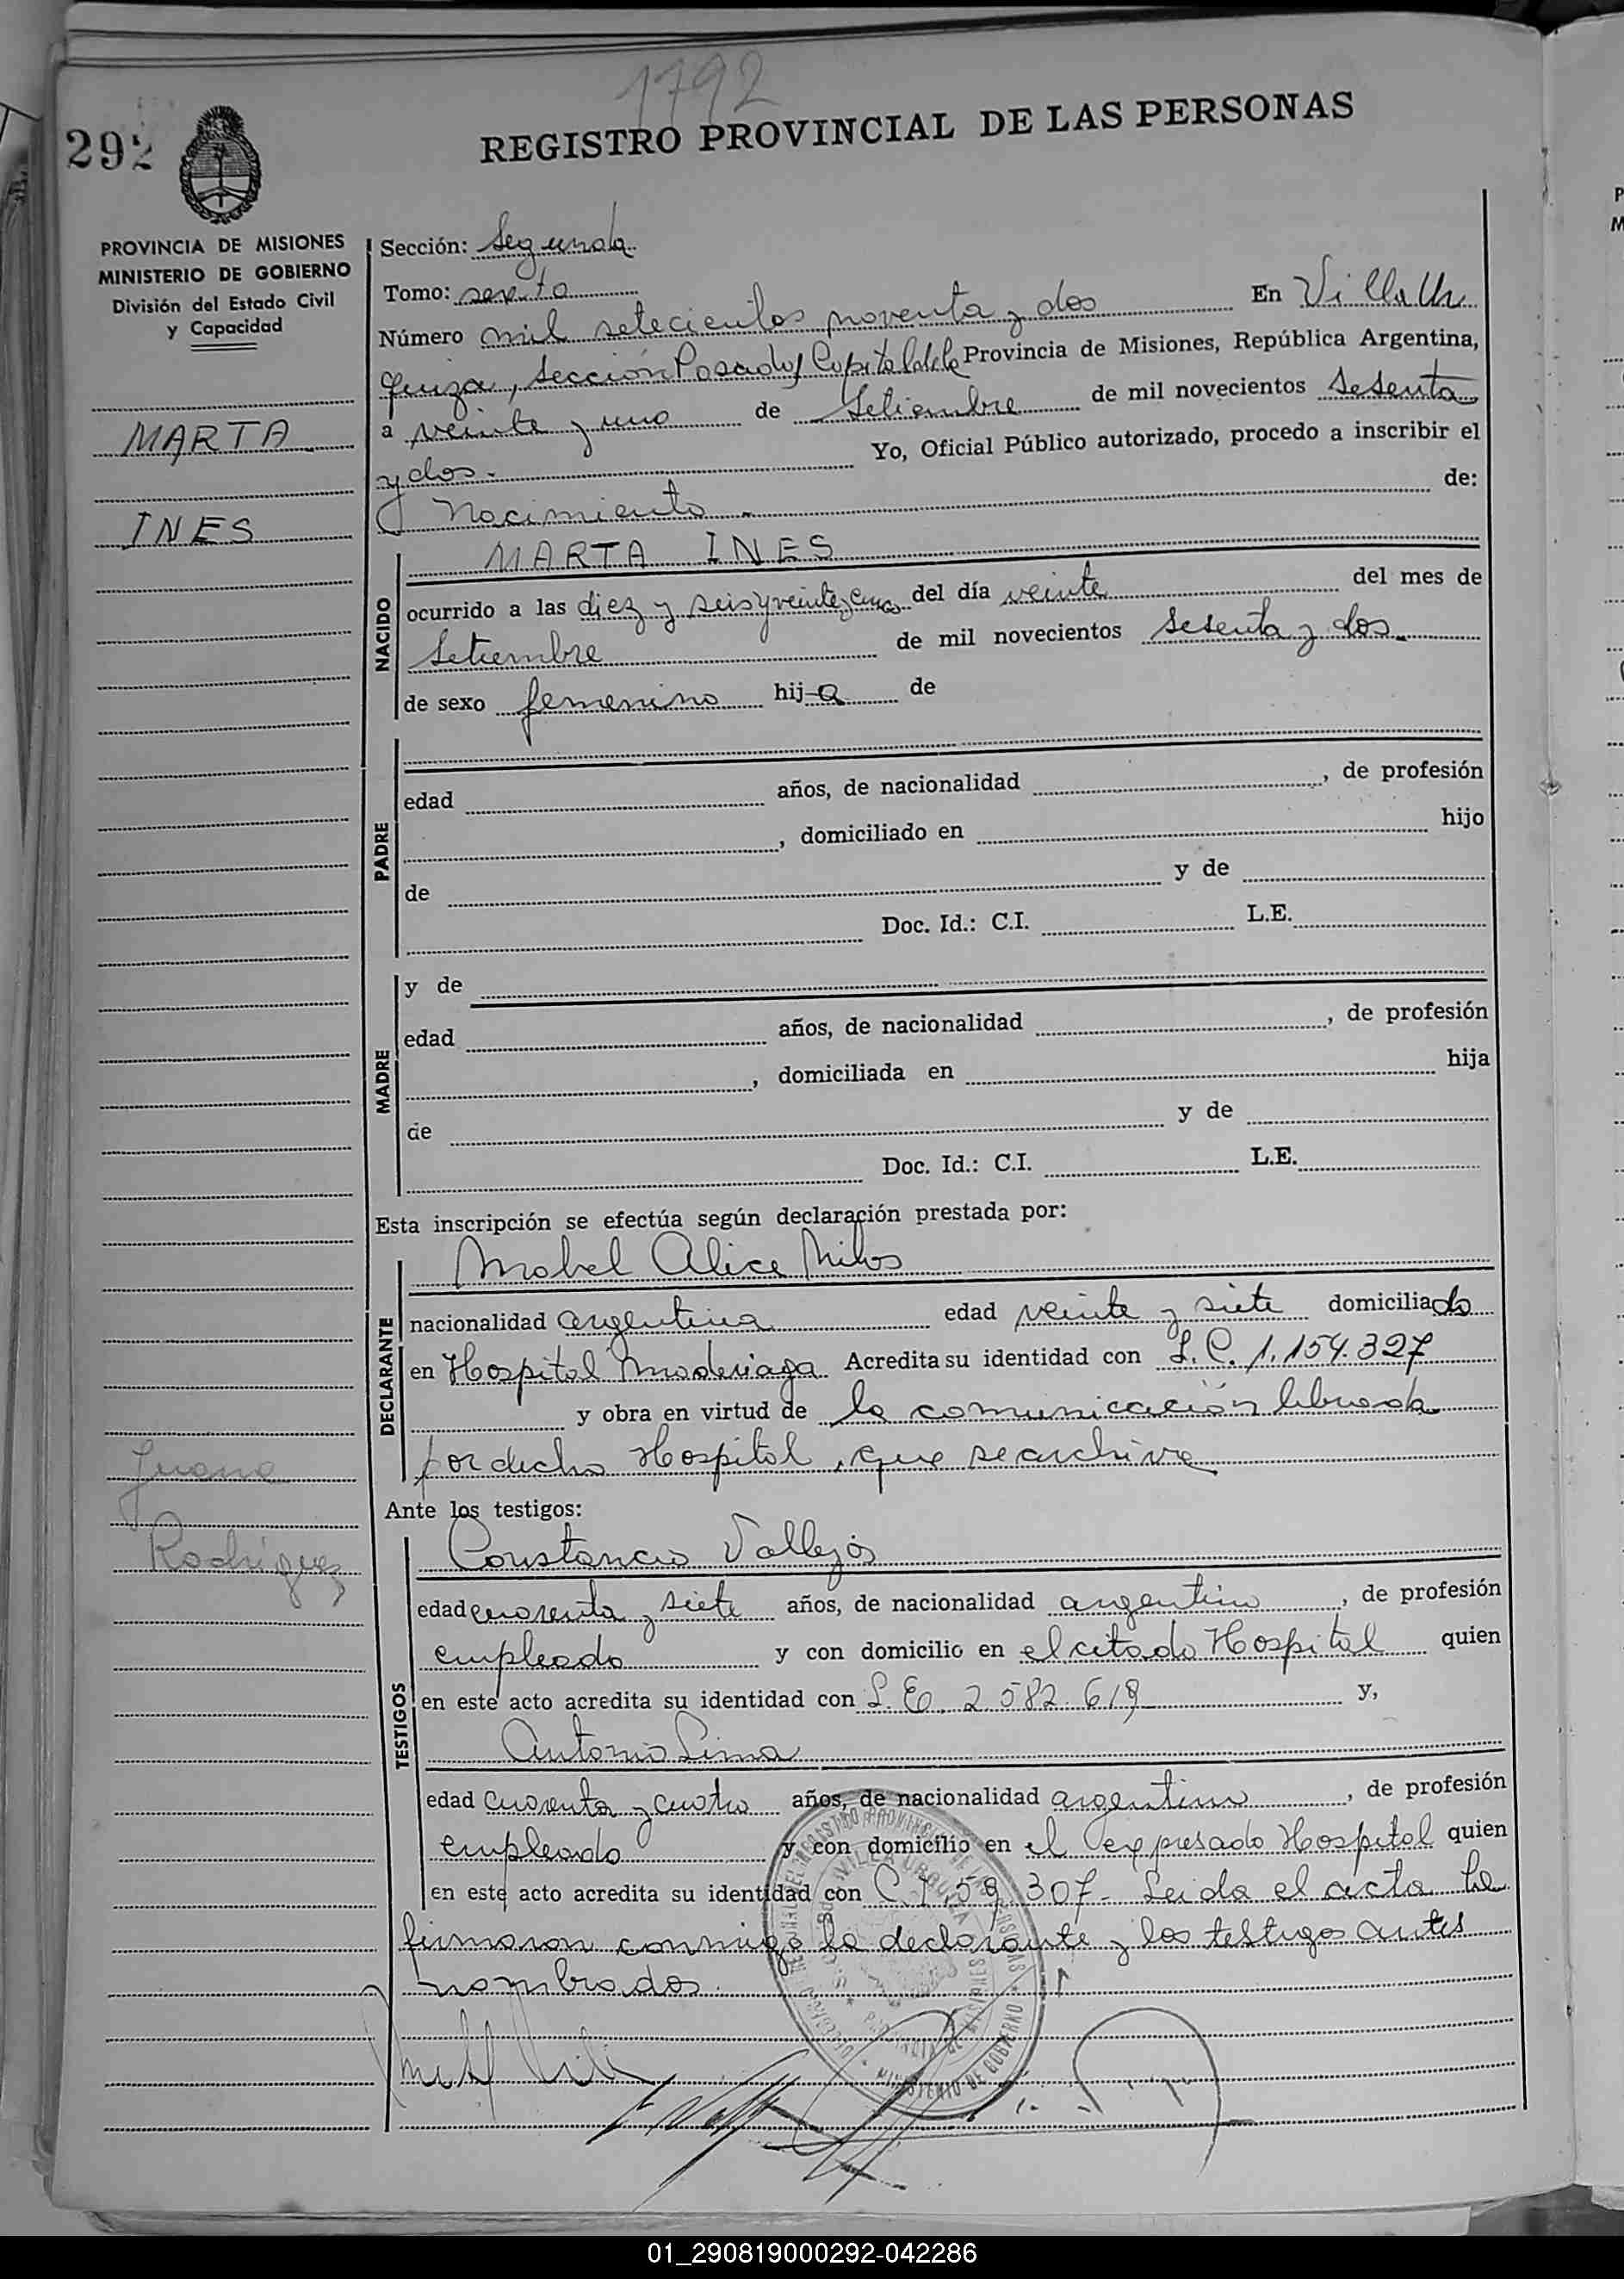 1792
292
REGISTRO PROVINCIAL DE LAS PERSONAS
PROVINCIA DE MISIONES
MINISTERIO DE GOBIERNO
División del Estado Civil
y Capacidad
MARTA
INES
Juana
Rodriguez
Sección: Segunda
Tomo: sexto
Número mil setecientos noventa y dos En Villa Ur
quiza, sección Posadas Capital de la Provincia de Misiones, República Argentina,
a veinte y uno de Setiembre de mil novecientos sesenta
y dos. Yo, Oficial Público autorizado, procedo a inscribir el
Nacimiento de:
NACIDO
MARTA INES
ocurrido a las diez y seis y veinte y cinco del día veinte del mes de
Setiembre de mil novecientos sesenta y dos
de sexo femenino hij a de
PADRE
edad años, de nacionalidad , de profesión
, domiciliado en hijo
de y de
Doc. Id.: C.I. L.E.
MADRE
y de
edad años, de nacionalidad , de profesión
, domiciliada en hija
de y de
Doc. Id.: C.I. L.E.
Esta inscripción se efectúa según declaración prestada por:
DECLARANTE
Mabel Alice
nacionalidad argentina edad veinte y siete domiciliado
en Hospital Madariaga Acredita su identidad con L.C. 1.154.327
y obra en virtud de la comunicación librada
por dicho Hospital, que se archiva
Ante los testigos:
TESTIGOS
Constancio Vallejos
edad cuarenta y siete años, de nacionalidad argentino , de profesión
empleado y con domicilio en el citado Hospital quien
en este acto acredita su identidad con L.E. 2.582.619 y,
Antonio Lima
edad cuarenta y cuatro años, de nacionalidad argentino , de profesión
empleado y con domicilio en el expresado Hospital quien
en este acto acredita su identidad con C.I 59.307- Leida el acta la
firmaron conmigo la declarante y los testigos antes
nombrados.
VILLA URQUIZA
MINISTERIO DE GOBIERNO
01_290819000292-042286